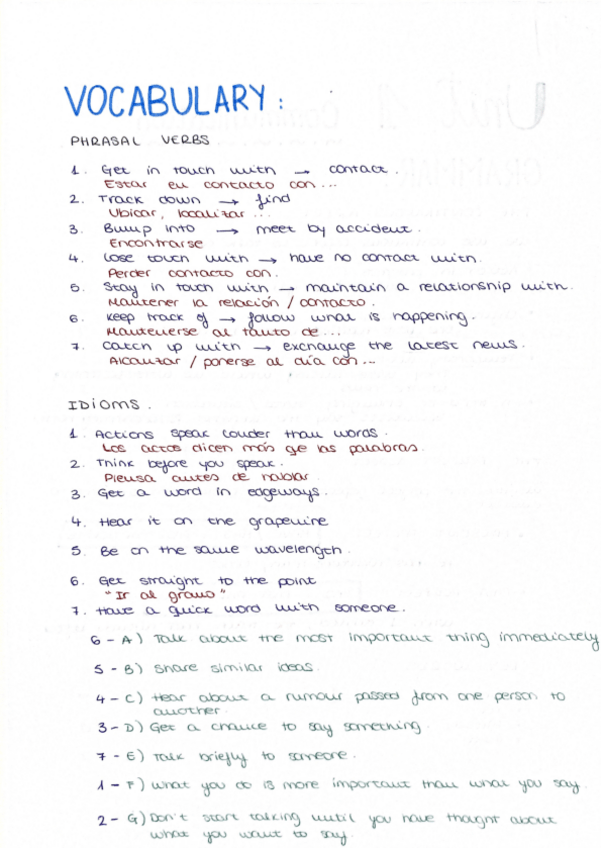 VOCABULARY:
PHRASAL VERBS
1. Get in touch with → contact.
Estar en contacto con...
2. Track down → find
Ubicar, localizar ...
3. Bump into → meet by accident.
Encontrarse
4. Lose touch with → have no contact with.
Perder contacto con.
5. Stay in touch with → maintain a relationship with.
Mantener la relación / contacto.
6. Keep track of → follow what is happening.
Mantenerse al tanto de...
7. Catch up with → exchange the latest news.
Alcanzar / ponerse al día con...
IDIOMS.
1. Actions speak louder than words.
Los actos dicen más qe las palabras.
2. Think before you speak.
Piensa antes de hablar
3. Get a word in edgeways.
4. Hear it on the grapevine
5. Be on the same wavelength.
6. Get straight to the point
"Ir al grano"
7. Have a quick word with someone.
6 - A) Talk about the most important thing immediately
5 - B) Share similar ideas.
4 - C) Hear about a rumour passed from one person to
another.
3 - D) Get a chance to say something.
7 - E) Talk briefly to someone.
1 - F) What you do is more important than what you say.
2 - G) Don't start talking until you have thought about
what you want to say.